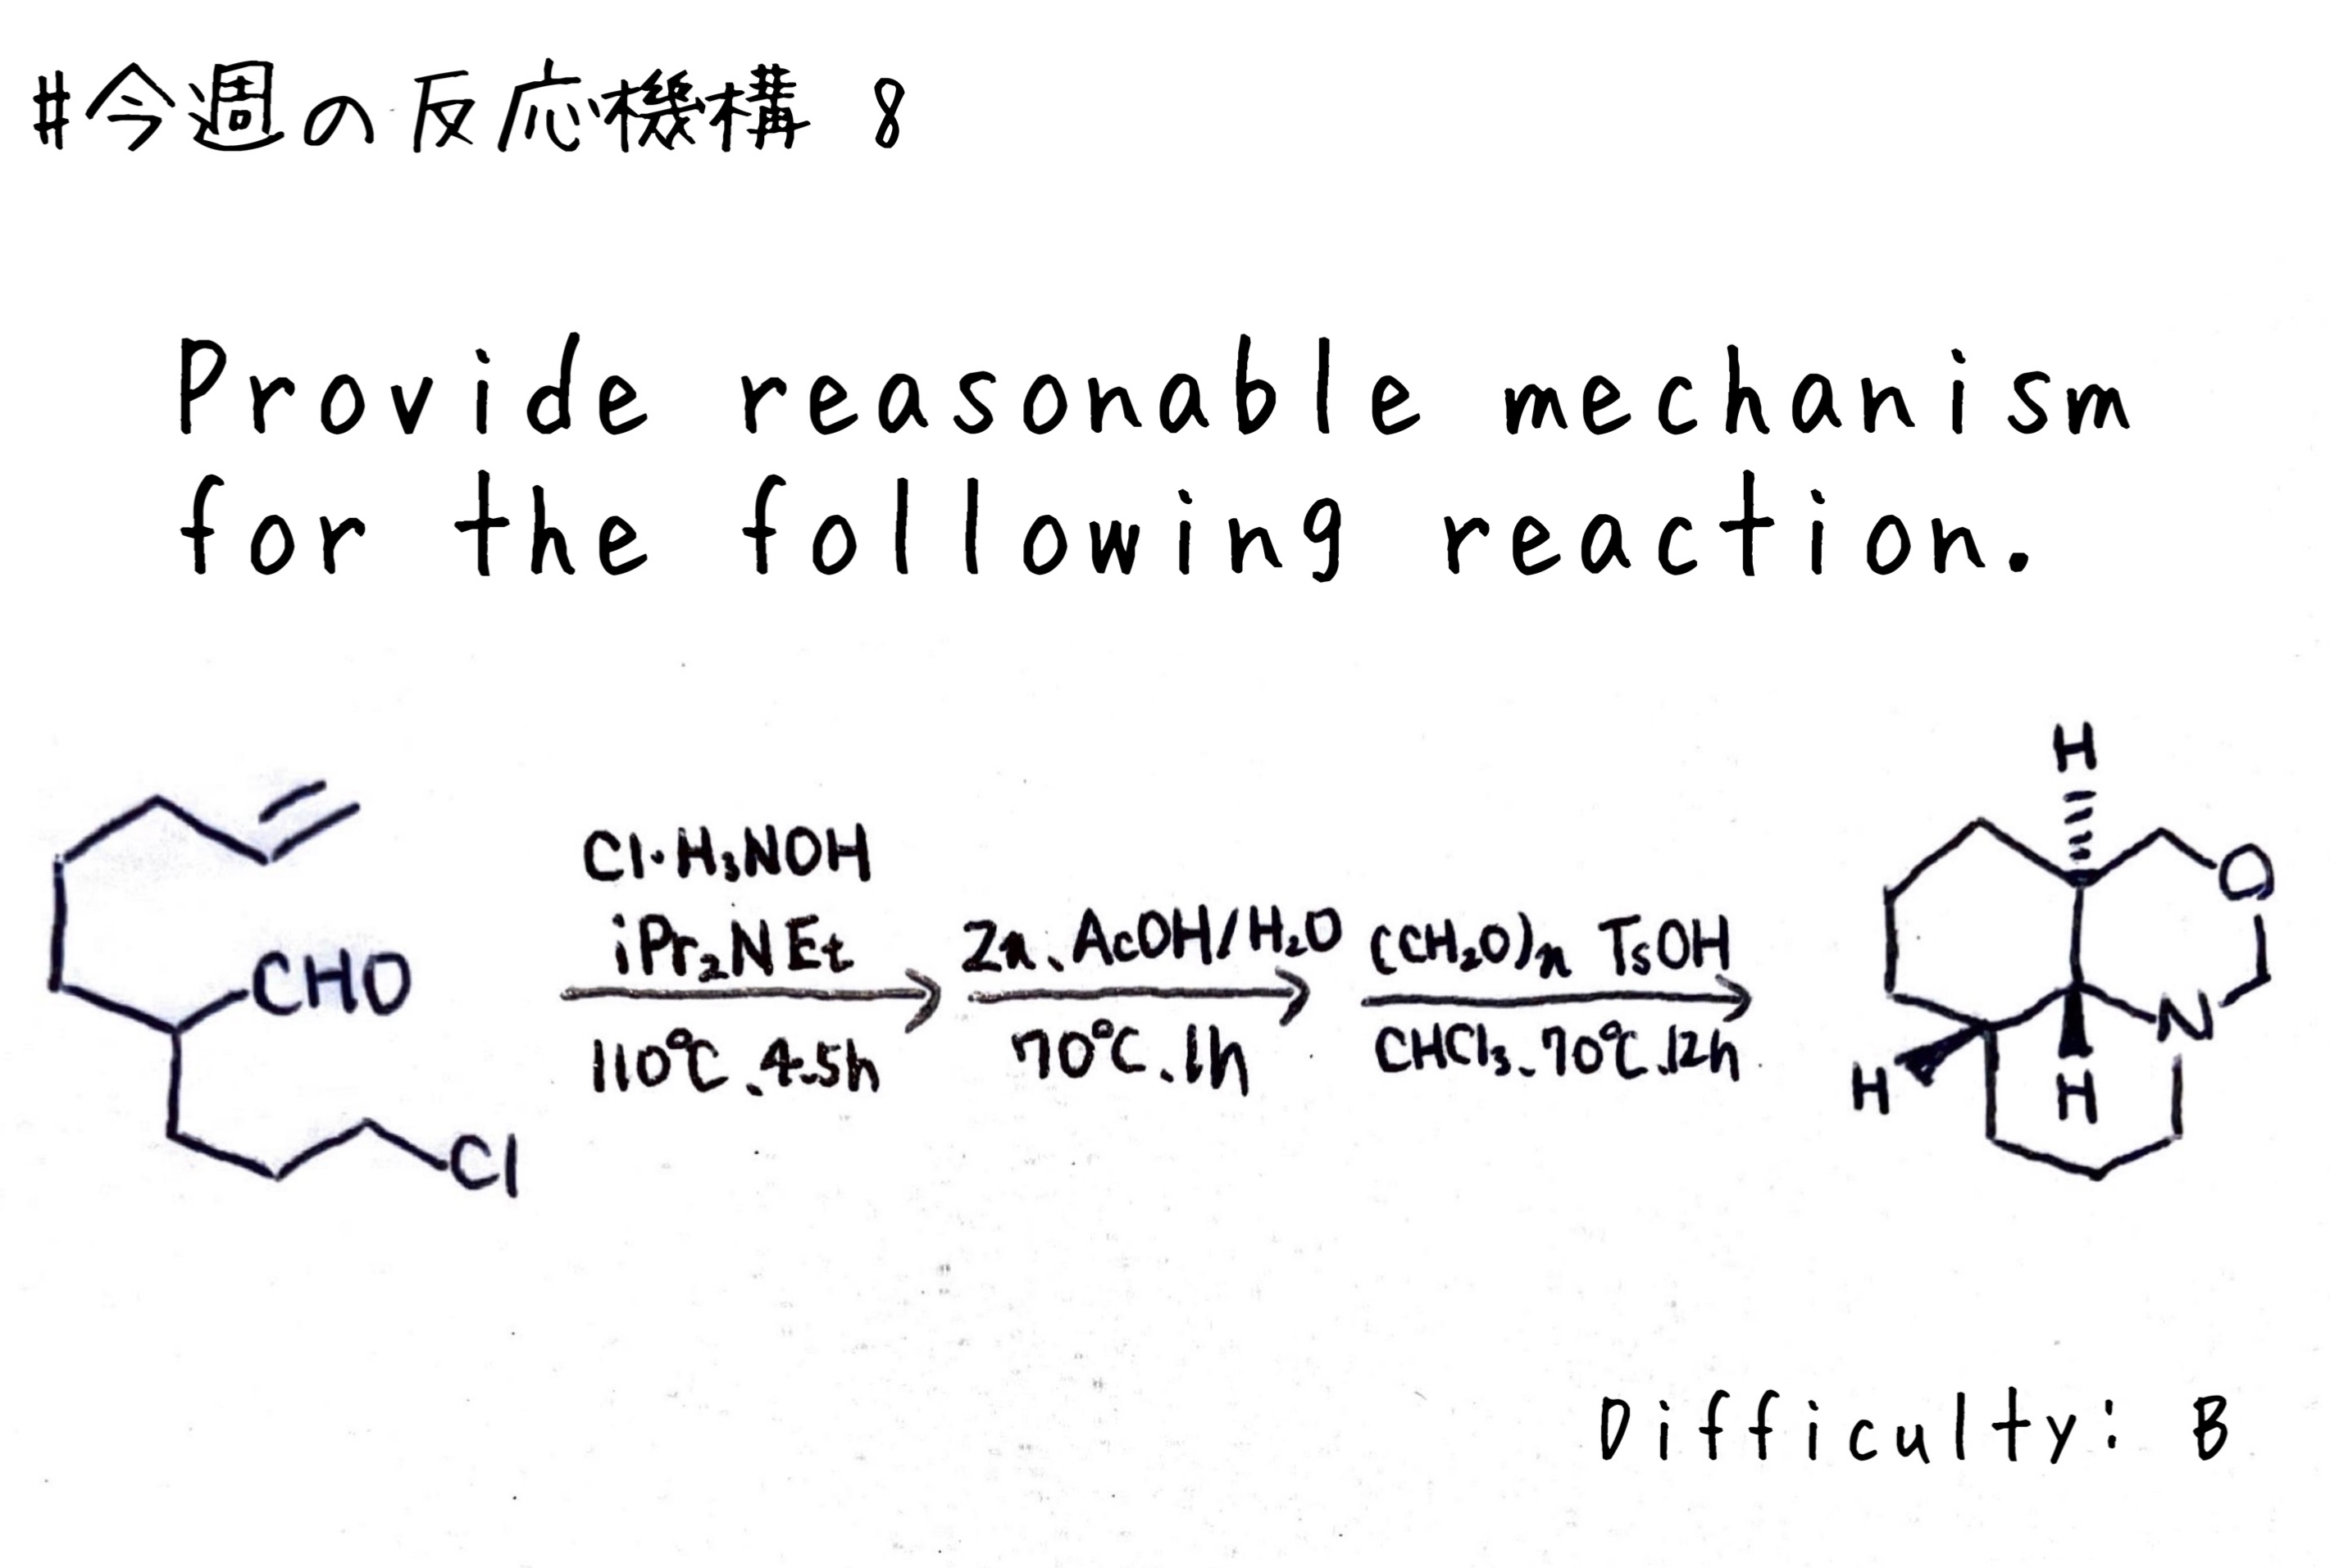 #今週の反応機構 8
Provide reasonable mechanism
for the following reaction.
CHO
Cl
Cl·H₃NOH
iPr₂NEt
110℃、4.5h
Zn、AcOH/H₂O
70℃、1h
(CH₂O)n TsOH
CHCl₃、70℃、12h
H
O
N
H
H
Difficulty: B